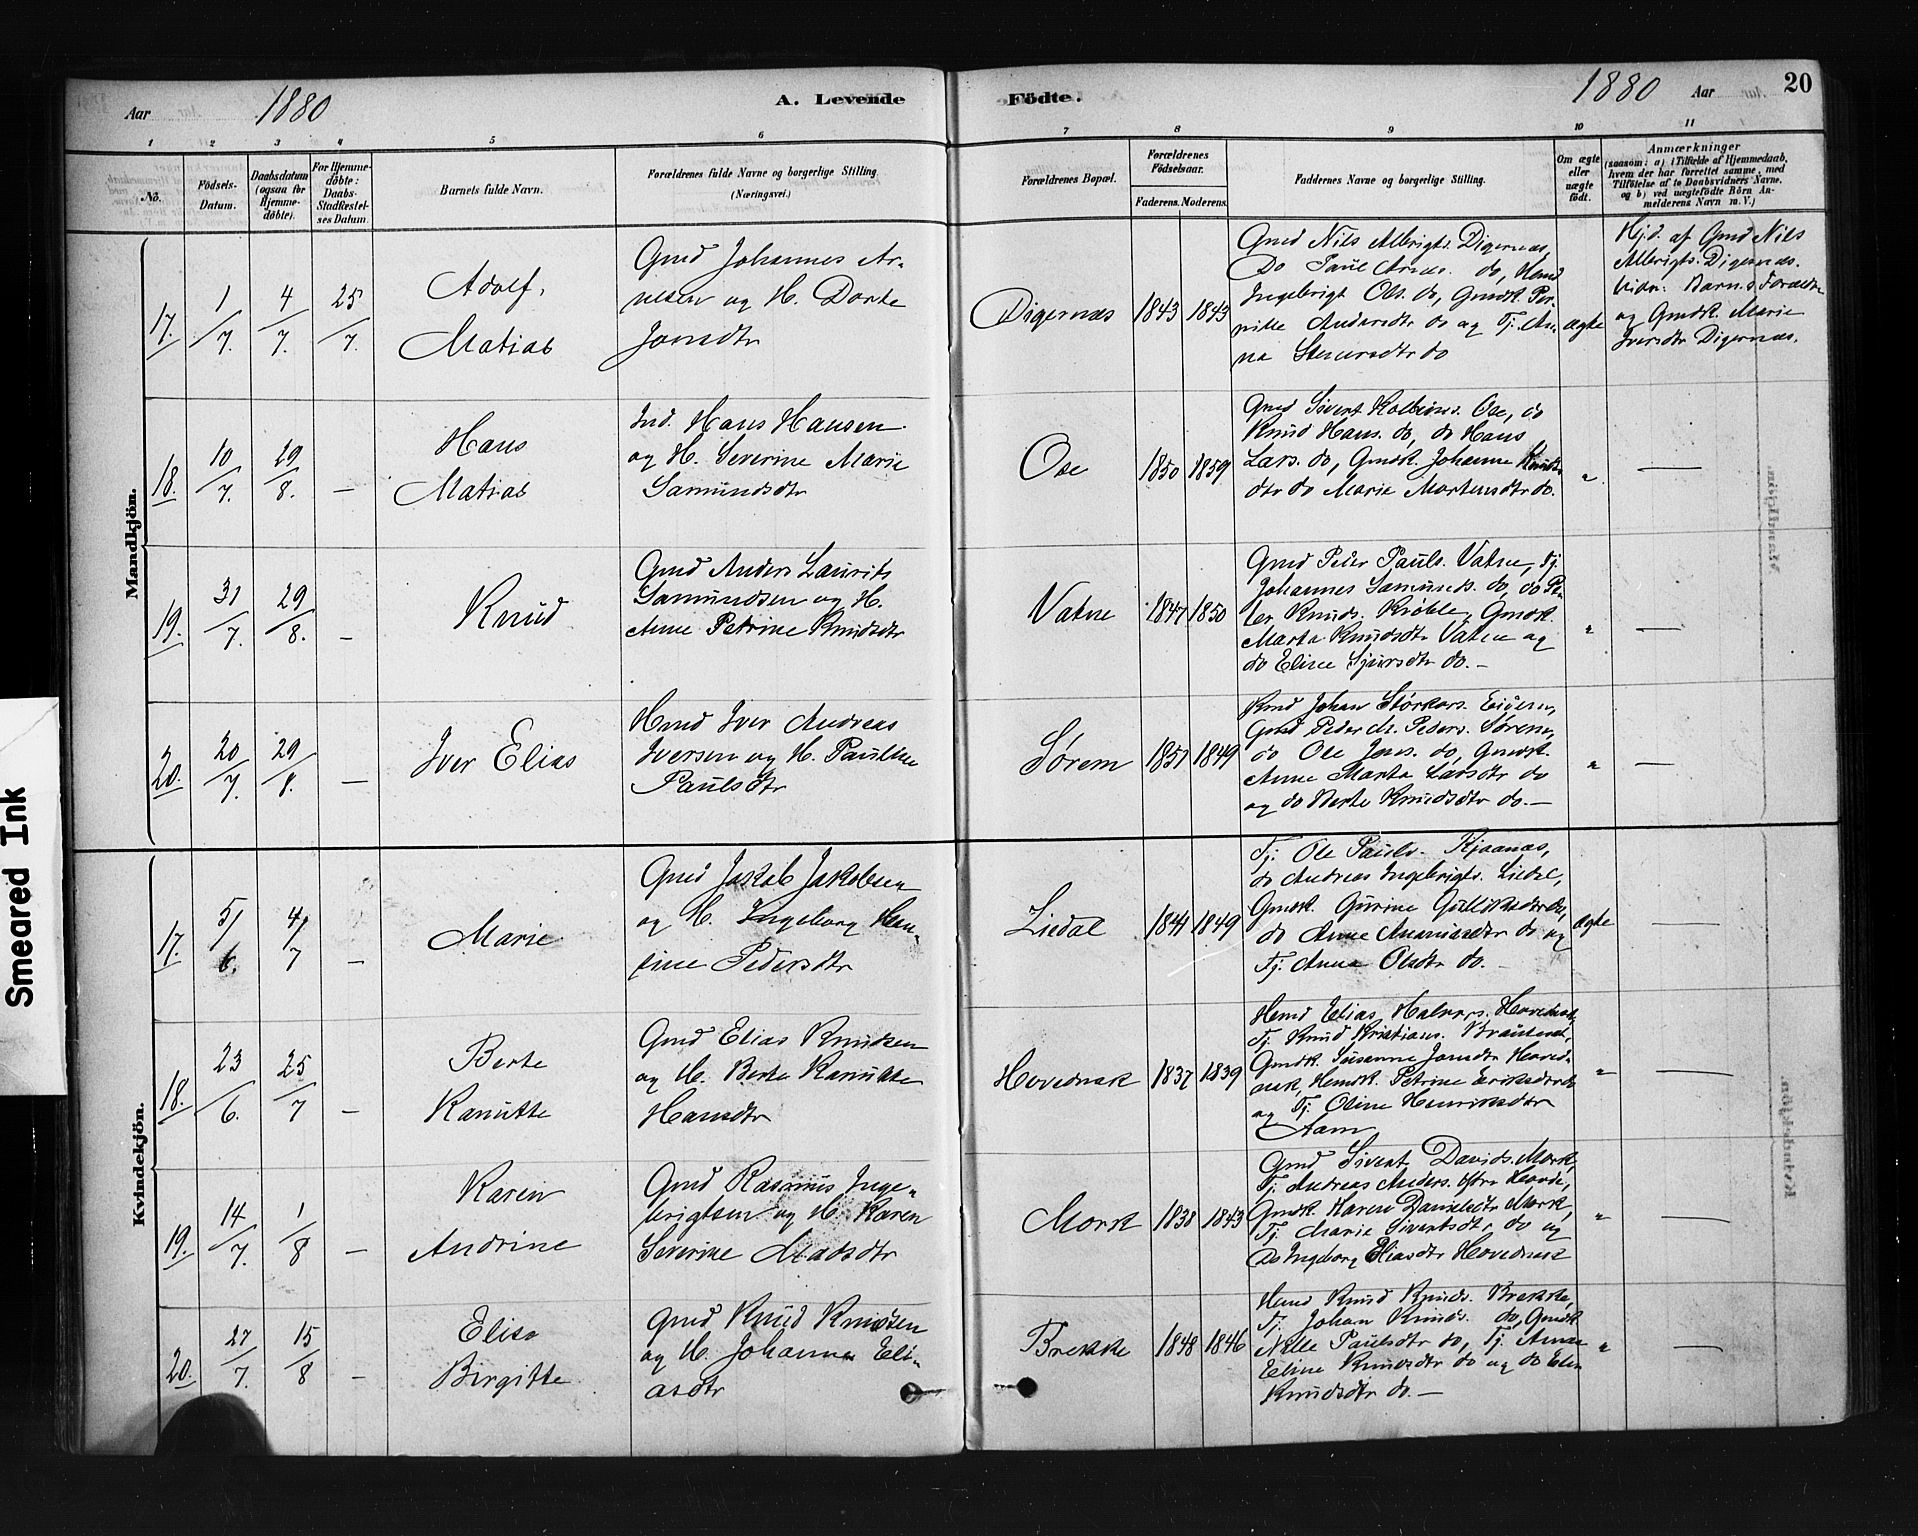 Aar 1880 A. Levende
Födte. 1880 Aar 20
1 2 3 4 5 6
7 8 9 10 11
No.
Födsels-
Datum.
Daabsdatum
(ogsaa for
Hjemme-
döbte).
For Hjemme-
döbte:
Daabs-
Stadfæstel-
ses Datum.
Barnets fulde Navn.
Forældrenes fulde Navne og borgerlige Stilling
(Næringsvei.)
Forældrenes Bopæl.
Forældrenes
Födselsaar.
Faderens. Moderens.
Faddernes Navne og borgerlige Stilling.
Om ægte
eller
uægte
födt.
Anmærkninger
(saasom: a) i Tilfælde af Hjemmedaab,
hvem der har forrettet samme, med
Tilföielse af to Daabsvidners Navne,
og b) ved uægtefödte Börn An-
melderens Navn m. V.)
Mandkjön.
17. 1/7. 4/7. 25/7.
Adolf,
Matias
Gmd Johannes Ar-
nesen og H. Dorte
Jonsdtr
Digernæs 1843 1843
Gmd Nils Albrigts. Digernæs,
Do Paul Arnes. do, Hmd
Ingebrigt Ols. do, Gmdk. Per-
nille Andersdtr do og Tj. An-
na Steneresdtr do
ægte
Hjd. af Gmd Nils
Albrigts. Digernæs.
Vidn. Barnets Forældre
og Gmdk. Marie
Iversdtr Digernæs.
18. 10/7. 29/8. —
Hans
Matias
Ind. Hans Hansen
og H. Severine Marie
Samundsdtr
Ose 1850 1859
Gmd Sivert Kolbeins. Ose, do
Knud Hans. do, do Hans
Lars. do, Gmdk. Johanne Knuds-
dtr do Marie Martensdtr do.
" —
19. 31/7. 29/8. —
Knud
Gmd Anders Laurits
Samundsen og H.
Anne Petrine Knudsdtr
Vatne 1847 1850
Gmd Peder Pauls. Vatne, Tj.
Johannes Samunds. do, do Pe-
ter Knuds. Krøble, Gmdk.
Marta Knudsdtr Vatne og
do Eline Sjursdtr do. -
" —
20. 20/7. 29/8. —
Iver Elias
Hmd Iver Andreas
Iversen og H. Pauline
Paulsdtr
Sørem 1851 1849
Kmd Johan Størkors.
Gmd Peder M. Peders. Sørem,
do Ole Jons. do, Gmdk.
Anne Marta Larsdtr do
og do Berte Knudsdtr do. —
" —
Kvindekjön.
17. 5/6. 4/7 —
Marie
Gmd Jakob Jakobsen
og H. Ingeborg Han-
sine Pedersdtr
Liedal 1841 1849
Tj. Ole Pauls.
do Andreas Ingebrigts. Liedal,
Gmdk. Gurine do,
do Anne Ananiasdtr do og
Tj. Anne Olsdtr do. -
ægte —
18. 23/6. 25/7 —
Berte
Kanutte
Gmd Elias Knudsen
og H. Berte Kanutte
Hansdtr
Hovednak 1837 1839
Hmd Elias Halvors. Hovednak,
Tj. Knud Kristians.
Gmdk. Susanne Jonsdtr Hoved-
nak, Hmdk. Petrine Eriksdtr do
og Tj. Oline Henriksdtr
Aam
" —
19. 14/7. 1/8 —
Karen
Andrine
Gmd Rasmus Inge-
brigtsen og H. Karen
Severine Madsdtr
Mork 1838 1843
Gmd Sivert Davids. Mork,
Tj. Andreas Anders. Hovde,
Gmdk. Karen Danielsdtr Mork,
Tj. Marie Sivertsdtr do og
Do Ingeborg Eliasdtr Hovednak
" —
20. 27/7. 15/8 —
Elise
Birgitte
Gmd Knud Knudsen
og H. Johanne Eli-
asdtr
Brekke 1848 1846
Hmd Knud Knuds. Brekke,
Tj. Johan Knuds. do, Gmdk
Nille Paulsdtr do, Tj. Anne
Eline Knudsdtr do og do Elen
Knudsdtr do. —
" —
Smeared Ink